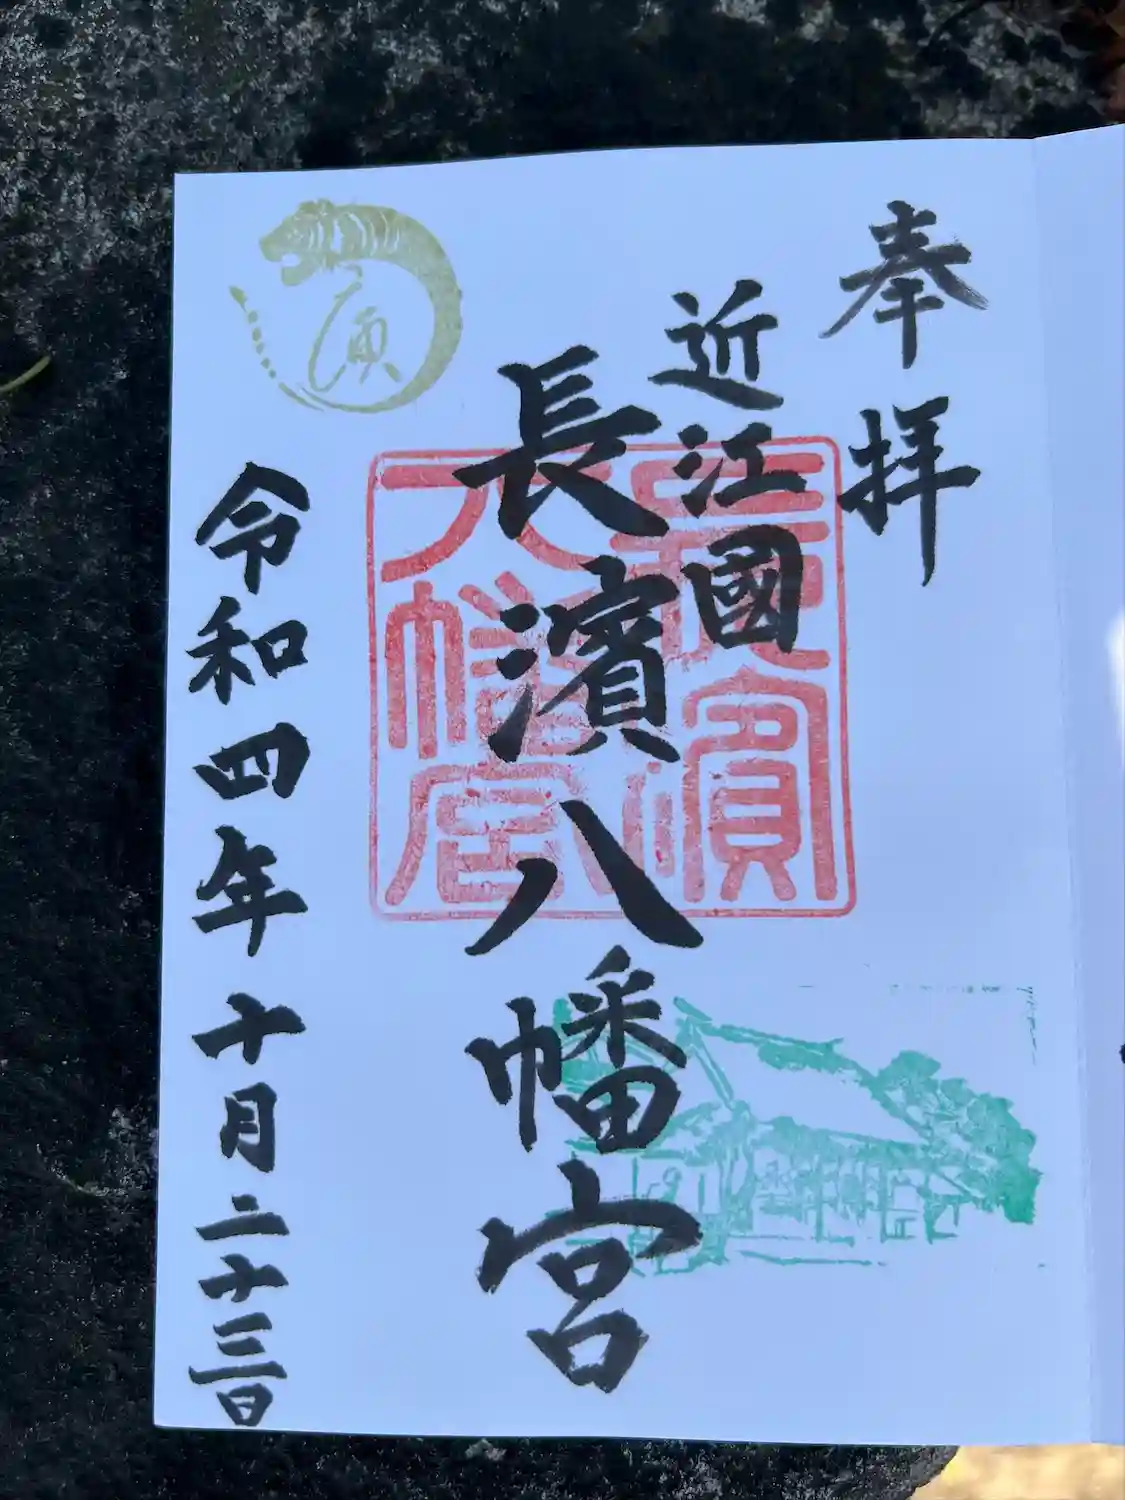 奉拝
近江國
長濱八幡宮
長濱
八幡宮
寅
令和四年十月二十三日